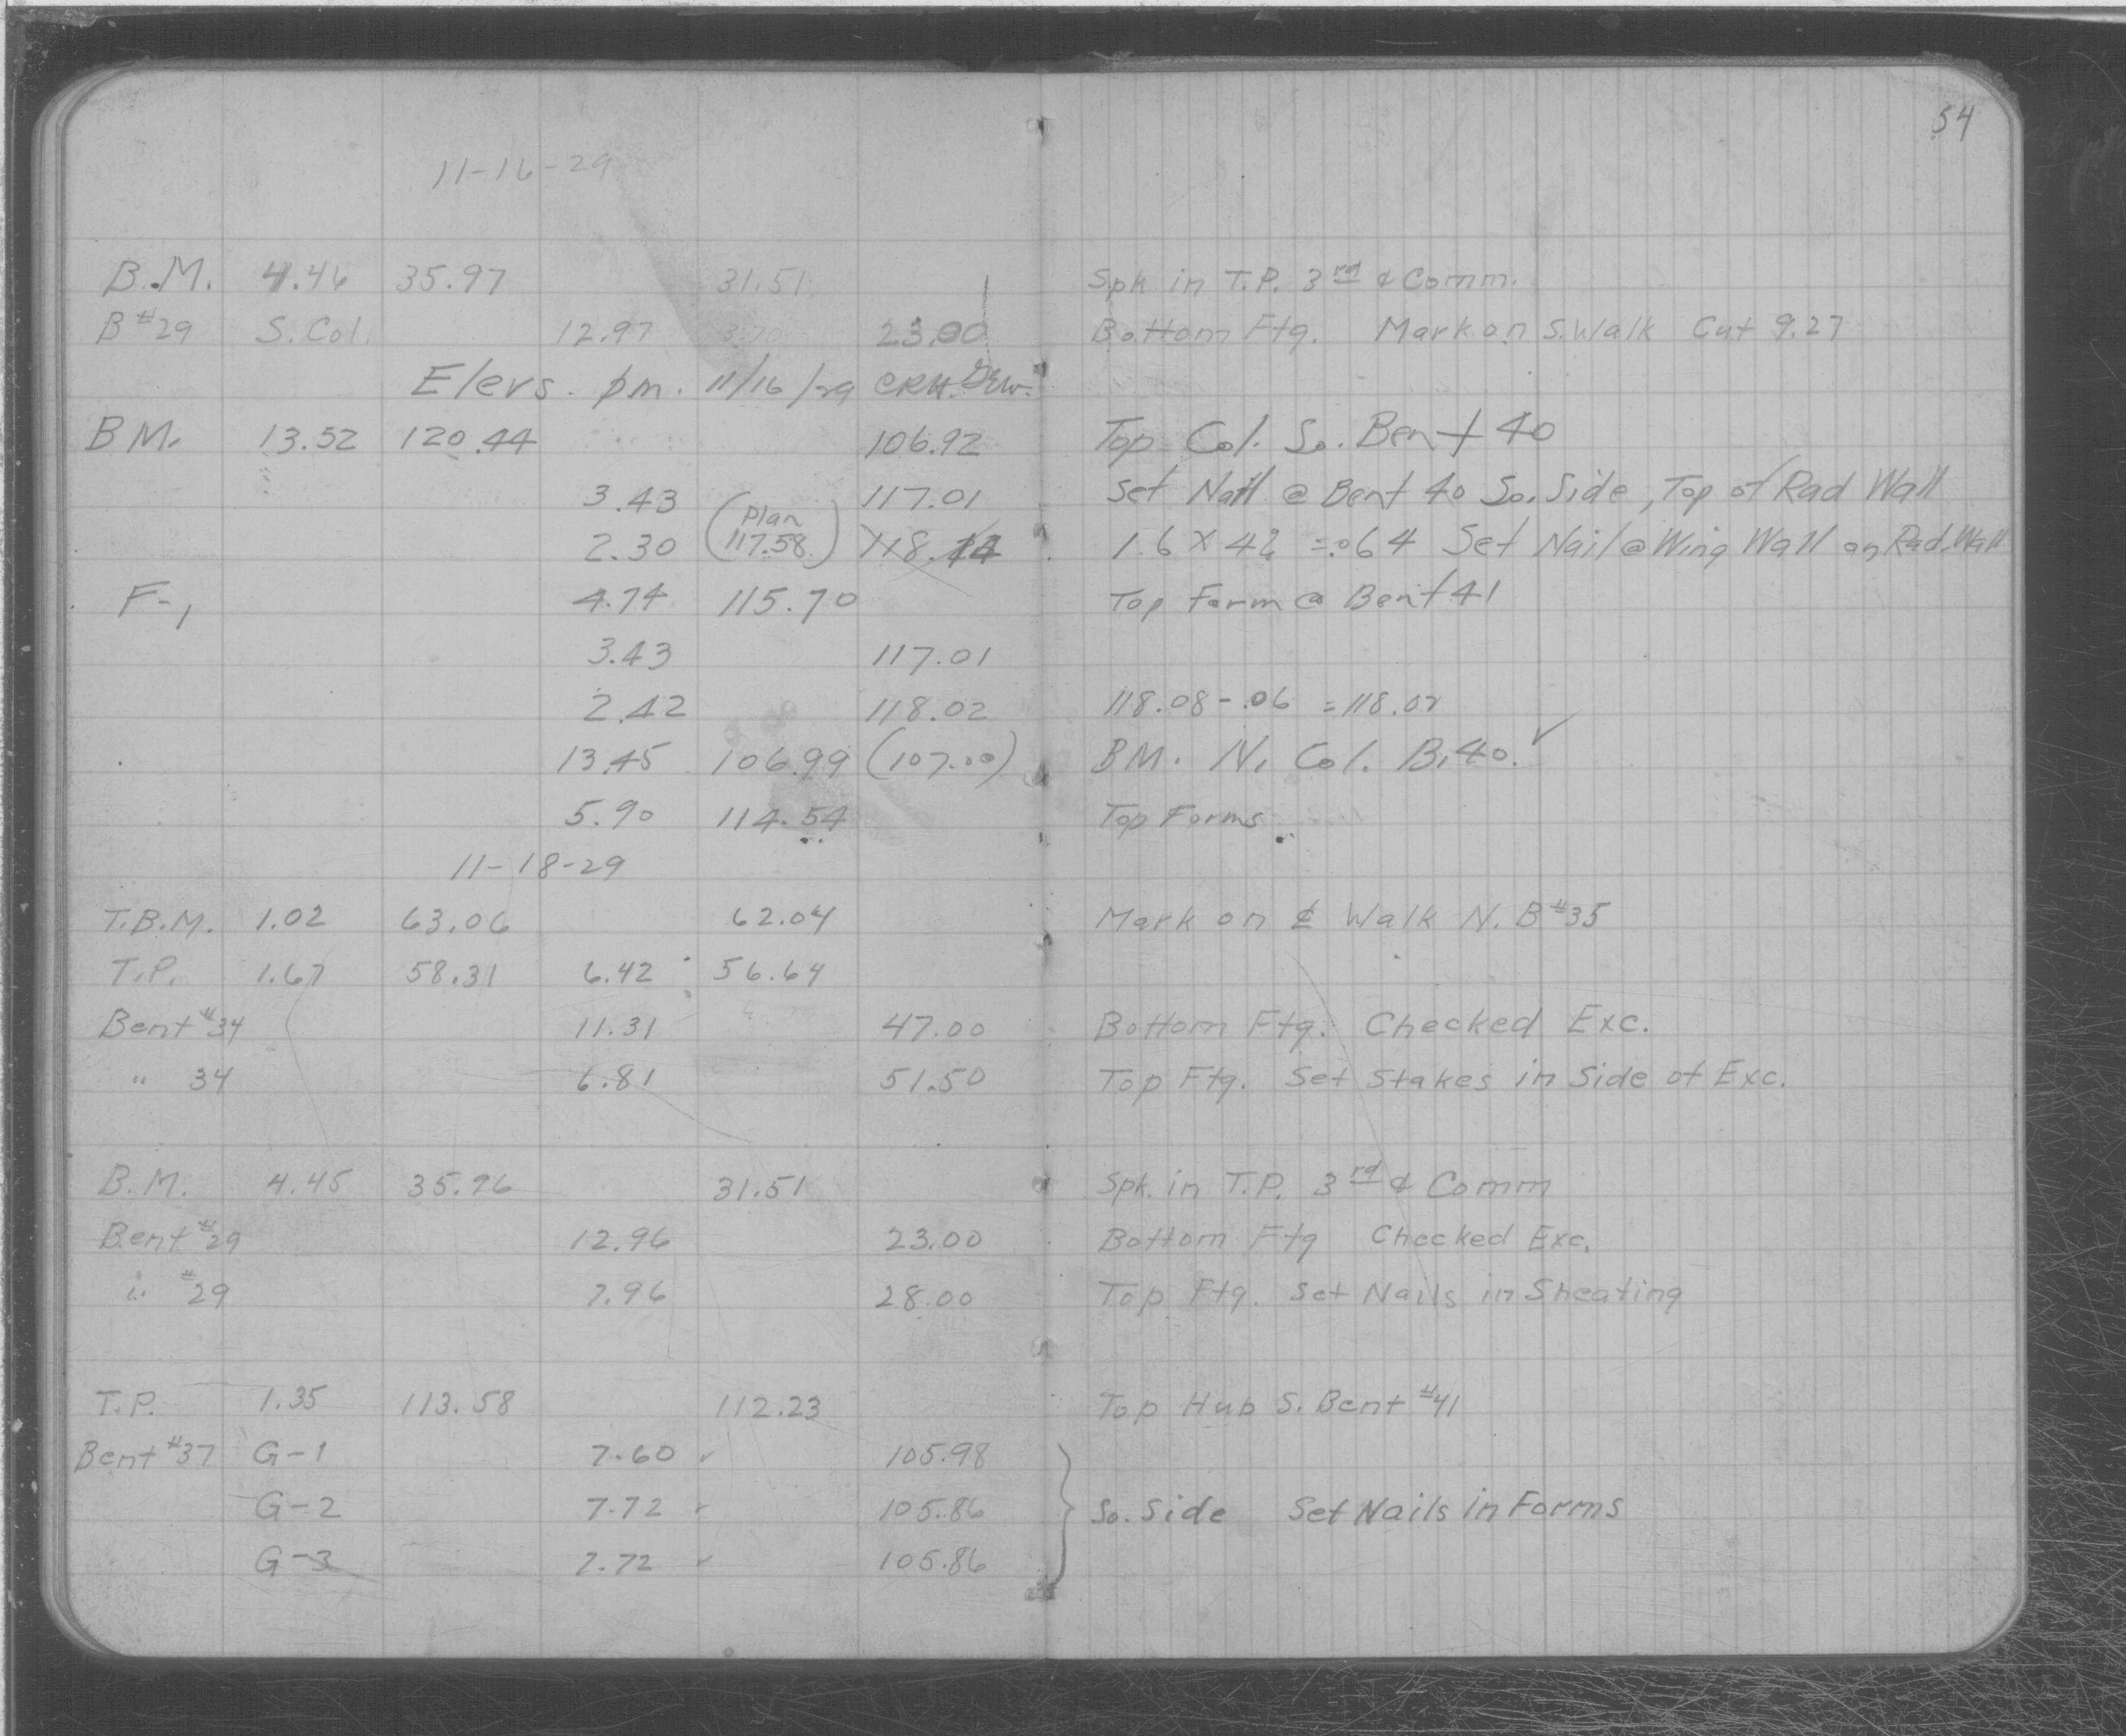 54
11-16-29
B.M. 4.46 35.97 31.51 Spk in T.P. 3rd & Comm.
B#29 S. Col. 12.97 23.00 Bottom Ftg. Mark on S. Walk Cut 9.27
Elevs. pm. 11/16/29 CRH
BM. 13.52 120.44 106.92 Top Col. So. Bent 40
3.43 117.01 Set Nail @ Bent 40 So. Side, Top of Rad Wall
2.30 (Plan 117.58) 118.14 1.6 X 42 = .064 Set Nail @ Wing Wall on Rad. Wall
F-1 4.74 115.70 Top Form @ Bent 41
3.43 117.01
2.42 118.02 118.08 - .06 = 118.02
13.45 106.99 (107.00) BM. N. Col. B.40. ✓
5.90 114.54 Top Forms
11-18-29
T.B.M. 1.02 63.06 62.04 Mark on ¢ Walk N. B#35
T.P. 1.67 58.31 6.42 56.64
Bent #34 11.31 47.00 Bottom Ftg. Checked Exc.
" 34 6.81 51.50 Top Ftg. Set Stakes in Side of Exc.
B.M. 4.45 35.96 31.51 Spk. in T.P. 3rd & Comm
Bent #29 12.96 23.00 Bottom Ftg Checked Exc.
" #29 7.96 28.00 Top Ftg. Set Nails in Sheating
T.P. 1.35 113.58 112.23 Top Hub S. Bent #41
Bent #37 G-1 7.60 ✓ 105.98
G-2 7.72 ✓ 105.86 So. Side Set Nails in Forms
G-3 7.72 ✓ 105.86